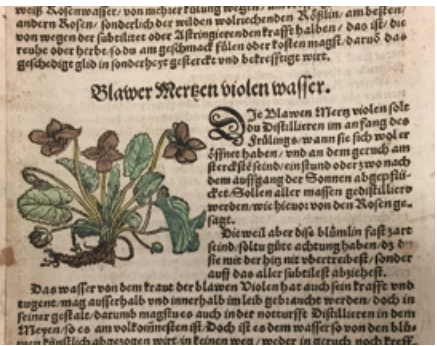 weiß Rosenwasser/ von mehrer külung wegen/
andern Rosen/ sonderlich der wilden wolriechenden Rößlin/ am besten/
von wegen der subtilitet oder Astringierenden krafft halben/ das ist/ die
reuhe oder herbe/ so du am geschmack fülen oder kosten magst/ daruō das
geschedigt glid in sonderheyt gesterckt vnd bekrefftigt wirt.
Blawer Mertzen violen wasser.
DJe Blawen Mertz violen solt
du Distillieren im anfang des
Frülings/ wann sie sich wol er
öffnet haben/ vnd an dem geruch am
sterckstē seind/ ein stund oder zwo nach
dem auffgang der Sonnen abgepflü-
cket. Sollen aller massen gedistilliert
werden/ wie hieuor von den Rosen ge-
sagt.
Die weil aber dise blümlin fast zart
seind/ soltu güte achtung haben/ dz du
sie mit der hitz nit vbertreibest/ sonder
auff das aller subtilest abziehest.
Das wasser von dem kraut der blawen Violen hat auch sein krafft vnd
tugent/ mag ausserhalb vnd innerhalb im leib gebraucht werden/ doch in
seiner gestalt/ darumb magstu es auch in der notturfft Distillieren in dem
Meyen/ so es am volkom̃nesten ist/ Doch ist es dem wasser so von den blü-
künstlich abgezogen wirt/ in keinen weg/ weder in geruch noch kreff-